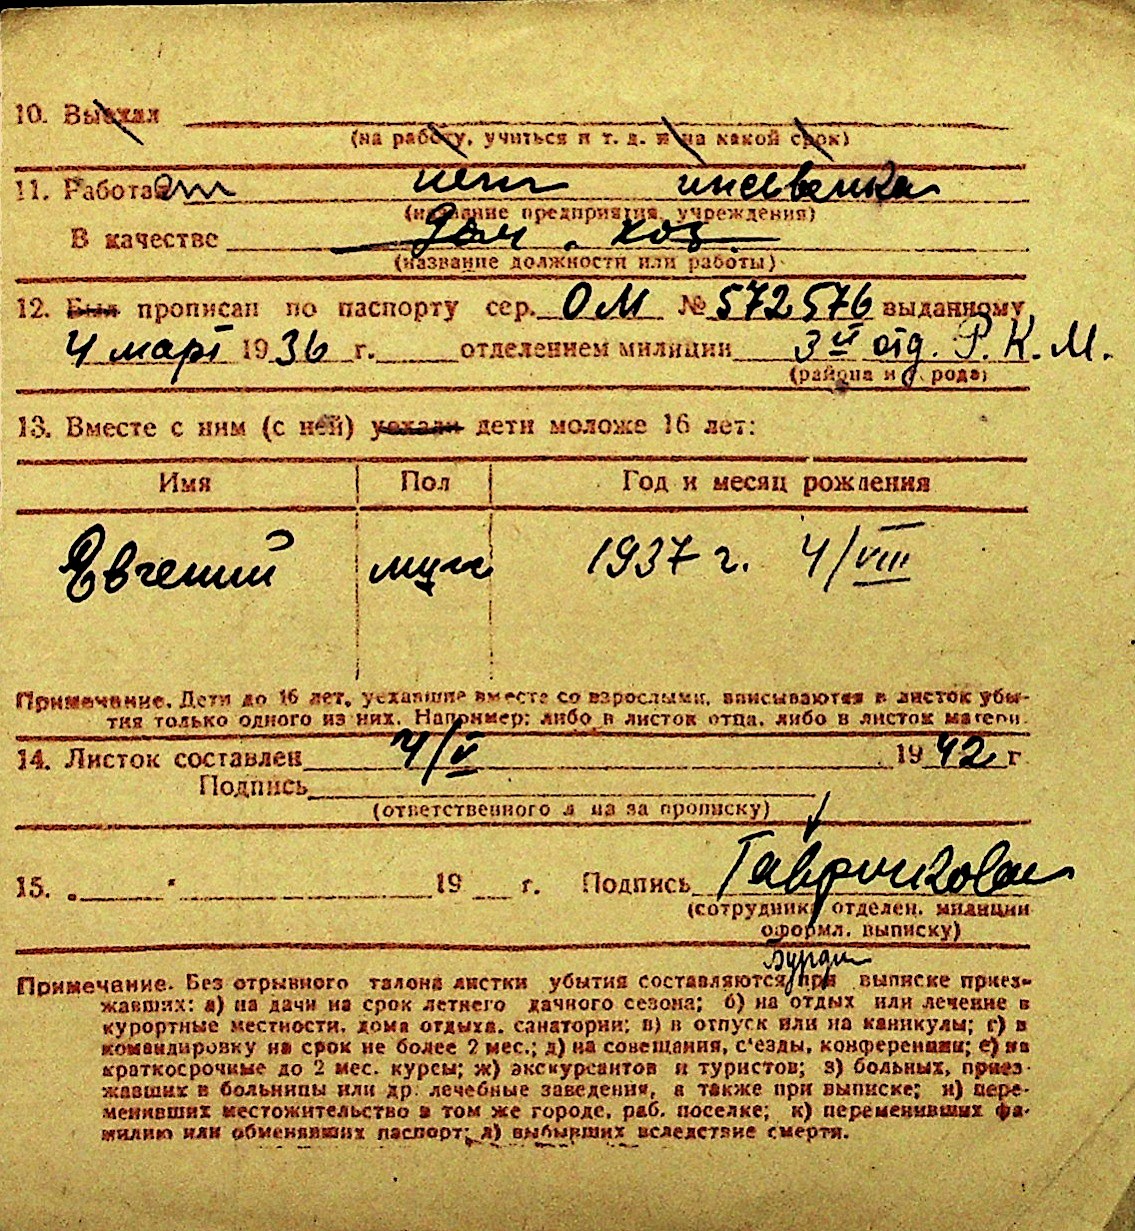 10. Выехал
(на работу, учиться и т. д. и на какой срок)
11. Работает нет иждивенка
(название предприятия, учреждения)
В качестве Дом. хоз
(название должности или работы)
12. Был прописан по паспорту сер. ОМ № 572576 выданному
4 март 1936 г. отделением милиции 3й отд. Р. К. М.
(района и города)
13. Вместе с ним (с ней) уехали дети моложе 16 лет:
Имя Пол Год и месяц рождения
Евгений муж 1937 г. 4/VIII
Примечание. Дети до 16 лет, уехавшие вместе со взрослыми, вписываются в листок убы-
тия только одного из них. Например: либо в листок отца, либо в листок матери.
14. Листок составлен 4/V 1942 г
Подпись
(ответственного л на за прописку)
15. „ " 19 г. Подпись Гаврикова
(сотрудника отделен. милиции
оформл. выписку)
Примечание. Без отрывного талона листки убытия составляются при выписке приез-
жавших: а) на дачи на срок летнего дачного сезона; б) на отдых или лечение в
курортные местности, дома отдыха, санатории; в) в отпуск или на каникулы; г) в
командировку на срок не более 2 мес.; д) на совещания, с'езды, конференции; е) на
краткосрочные до 2 мес. курсы; ж) экскурсантов и туристов; з) больных, приез-
жавших в больницы или др. лечебные заведения, а также при выписке; и) пере-
менивших местожительство в том же городе, раб. поселке; к) переменивших фа-
милию или обменявших паспорт; л) выбывших вследствие смерти.